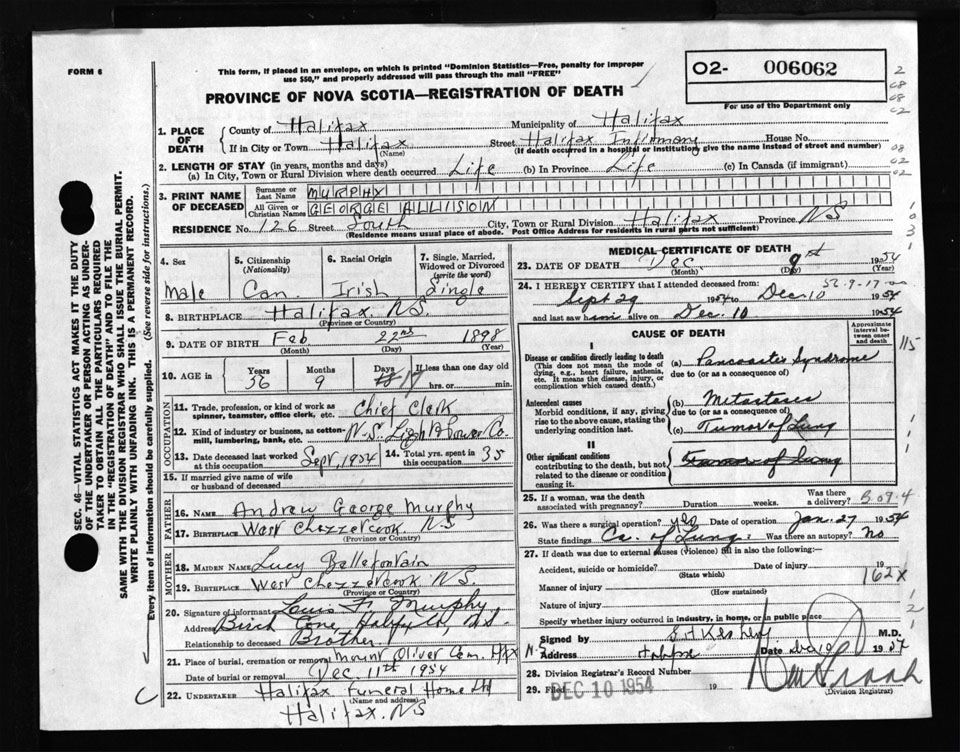 FORM 6
This form, if placed in an envelope, on which is printed "Dominion Statistics—Free, penalty for improper
use $50," and properly addressed will pass through the mail "FREE"
O2- 006062
For use of the Department only
PROVINCE OF NOVA SCOTIA—REGISTRATION OF DEATH
1. PLACE OF DEATH
County of Halifax Municipality of Halifax
If in City or Town Halifax Street Halifax Infirmary House No.
(Name) (If death occurred in a hospital or institution, give the name instead of street and number)
2. LENGTH OF STAY (in years, months and days)
(a) In City, Town or Rural Division where death occurred Life (b) In Province Life (c) In Canada (if immigrant)
3. PRINT NAME OF DECEASED
Surname or Last Name MURPHY
All Given or Christian Names GEORGE ALLISON
RESIDENCE No. 126 Street South City, Town or Rural Division Halifax Province NS
(Residence means usual place of abode. Post Office Address for residents in rural parts not sufficient)
4. Sex Male
5. Citizenship (Nationality) Can.
6. Racial Origin Irish
7. Single, Married, Widowed or Divorced (write the word) Single
8. BIRTHPLACE Halifax NS.
(Province or Country)
9. DATE OF BIRTH Feb 22nd 1898
(Month) (Day) (Year)
10. AGE in Years 56 Months 9 Days 17 If less than one day old
hrs. or min.
OCCUPATION
11. Trade, profession, or kind of work as spinner, teamster, office clerk, etc. Chief Clerk
12. Kind of industry or business, as cotton-mill, lumbering, bank, etc. N.S. Light & Power Co.
13. Date deceased last worked at this occupation Sept, 1954
14. Total yrs. spent in this occupation 35
15. If married give name of wife or husband of deceased
FATHER
16. NAME Andrew George Murphy
17. BIRTHPLACE West Chezzetcook NS
(Province or Country)
MOTHER
18. MAIDEN NAME Lucy Bellefontain
19. BIRTHPLACE West Chezzetcook NS.
(Province or Country)
20. Signature of informant Louis F. Murphy
Address Birch Cove, Halifax Co, N.S.
Relationship to deceased Brother
21. Place of burial, cremation or removal Mount Oliver Cem. Hfx
Date of burial or removal Dec 11th 1954
22. UNDERTAKER Halifax Funeral Home Ltd
(Name and address)
Halifax. NS
MEDICAL CERTIFICATE OF DEATH
23. DATE OF DEATH Dec 9th 1954
(Month) (Day) (Year)
24. I HEREBY CERTIFY that I attended deceased from:
Sept 29 1954 to Dec 10 1954
and last saw him alive on Dec. 10 1954
CAUSE OF DEATH
Approximate interval between onset and death
I
Disease or condition directly leading to death (a) Pancoasts Syndrome
(This does not mean the mode of dying, e.g., heart failure, asthenia, etc. It means the disease, injury, or complication which caused death.)
due to (or as a consequence of)
Antecedent causes (b) Metastasis
Morbid conditions, if any, giving rise to the above cause, stating the underlying condition last.
due to (or as a consequence of)
(c) Tumor of Lung
II
Other significant conditions
contributing to the death, but not related to the disease or condition causing it.
Tumor of Lung
115
25. If a woman, was the death associated with pregnancy? Duration weeks. Was there a delivery?
26. Was there a surgical operation? yes Date of operation Jan. 27 1954
State findings Ca. of Lung Was there an autopsy? No
27. If death was due to external causes (violence) fill in also the following:
Accident, suicide or homicide? Date of injury 19
(State which)
162x
Manner of injury
(How sustained)
Nature of injury
Specify whether injury occurred in industry, in home, or in public place
Signed by M.D.
Address Date 19
28. Division Registrar's Record Number
29. Filed DEC 10 1954 19
(Division Registrar)
SEC. 46—VITAL STATISTICS ACT MAKES IT THE DUTY
OF THE UNDERTAKER OR PERSON ACTING AS UNDER-
TAKER TO OBTAIN ALL THE PARTICULARS REQUIRED
IN THE "REGISTRATION OF DEATH" AND TO FILE THE
SAME WITH THE DIVISION REGISTRAR WHO SHALL ISSUE THE BURIAL PERMIT.
WRITE PLAINLY WITH UNFADING INK. THIS IS A PERMANENT RECORD.
Every item of information should be carefully supplied. (See reverse side for instructions.)